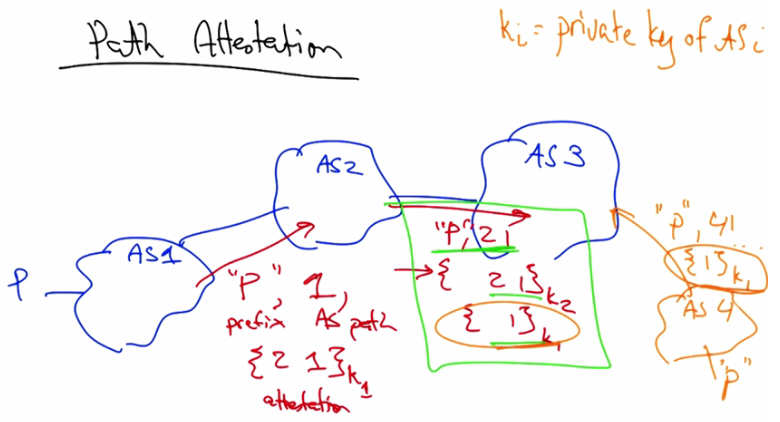 Path Attestation
ki = private key of ASi
AS2
AS3
AS1
P
"P", 1,
prefix AS path
{2 1}k1
attestation
"P", 2 1
{ 2 1}k2
{ 1}k1
"P", 41
...
{1}k1
AS4
"P"